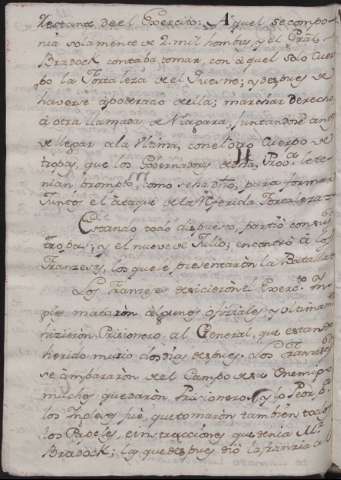 restante de el Exercito; Aquel se compo-
nia solamente de 2 mil hombres y el Gral.
Bradock contaba tomar, con aquel solo Cuer-
po la Fortaleza de el Quesne; y despues de
haverse apoderado de ella; marchar derecho
à otra llamada de Niagara, juntandose antes
de llegar a la Ultima, con el otro Cuerpo de
tropas, que los Governadores de las Proas. le te-
nian prompto, como se ha dho, para formar
Juntos el ataque de la referida Fortaleza
Estando todo dispuesto, partiò con sus
tropas; y el nueve de Julio; encontrò a los
Franceses, los que le presentaron la Batalla
Los Franceses deshicieron el Exerto.
mataron algunos oficiales y ultimamte
hicieron Prisionero, al General, que estando
herido murio dos dias despues, los Franceses
se ampararon de el Campo de su Enemigo
muchos quedaron Prisioneros, y lo Peor p.a
los Ingleses fuè, que tomaron tambien todos
los Papeles, è instrucciones que tenia Mr.
Bradock; los que despues diò la francia al